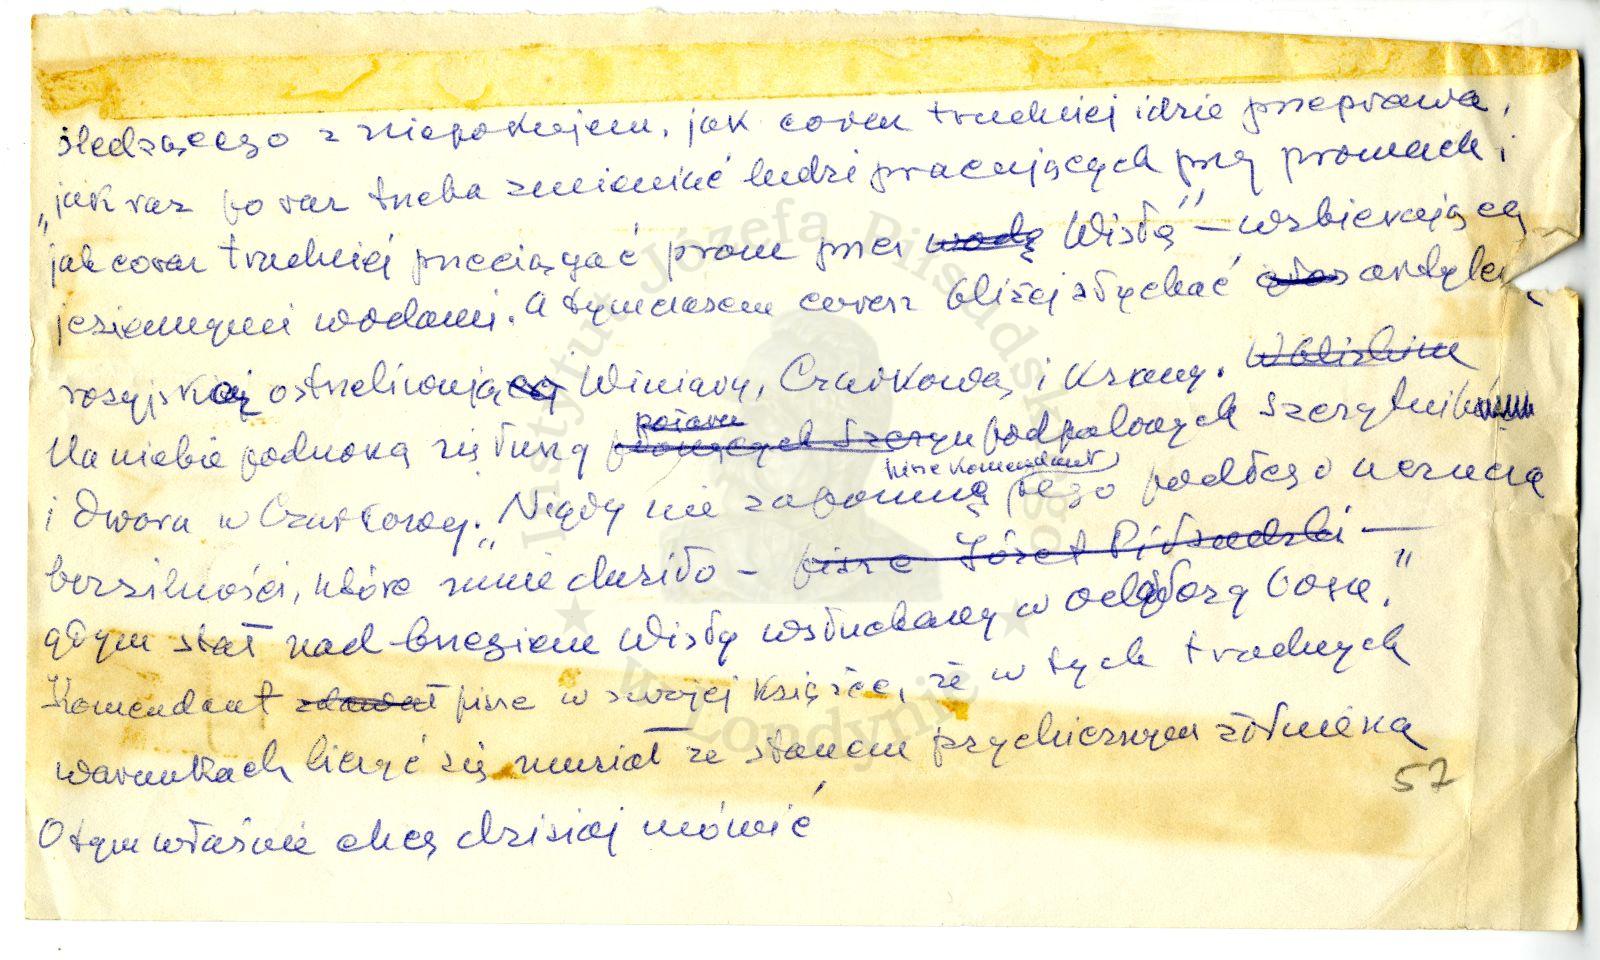 śledzącego z niepokojem, jak coraz trudniej idzie przeprawa,
„jak raz po raz trzeba zmieniać ludzi pracujących przy promach i
jak coraz trudniej przeciągać prom przez wodę Wisłę” – wzbierającą
jesiennymi wodami. A tymczasem coraz bliżej słychać głos artylerii
rosyjskiej ostrzeliwującej Winiary, Czarkową i Ksany. W bliskim
Na niebie podnoszą się łuny płonących stert pożaru podpalonych Szczytnik
i dworu w Czarkowy. „Nigdy nie zapomnę pisze Komendant tego podłego uczucia
bezsilności, które mnie dusiło – pisze Józef Piłsudski –
gdym stał nad brzegiem Wisły wsłuchany w odgłosy boju.”
Komendant pisze w swojej książce, że w tych trudnych
warunkach liczyć się musiał ze stanem psychicznym żołnierza
57
O tym właśnie chcę dzisiaj mówić
Instytut Józefa Piłsudskiego
w Londynie